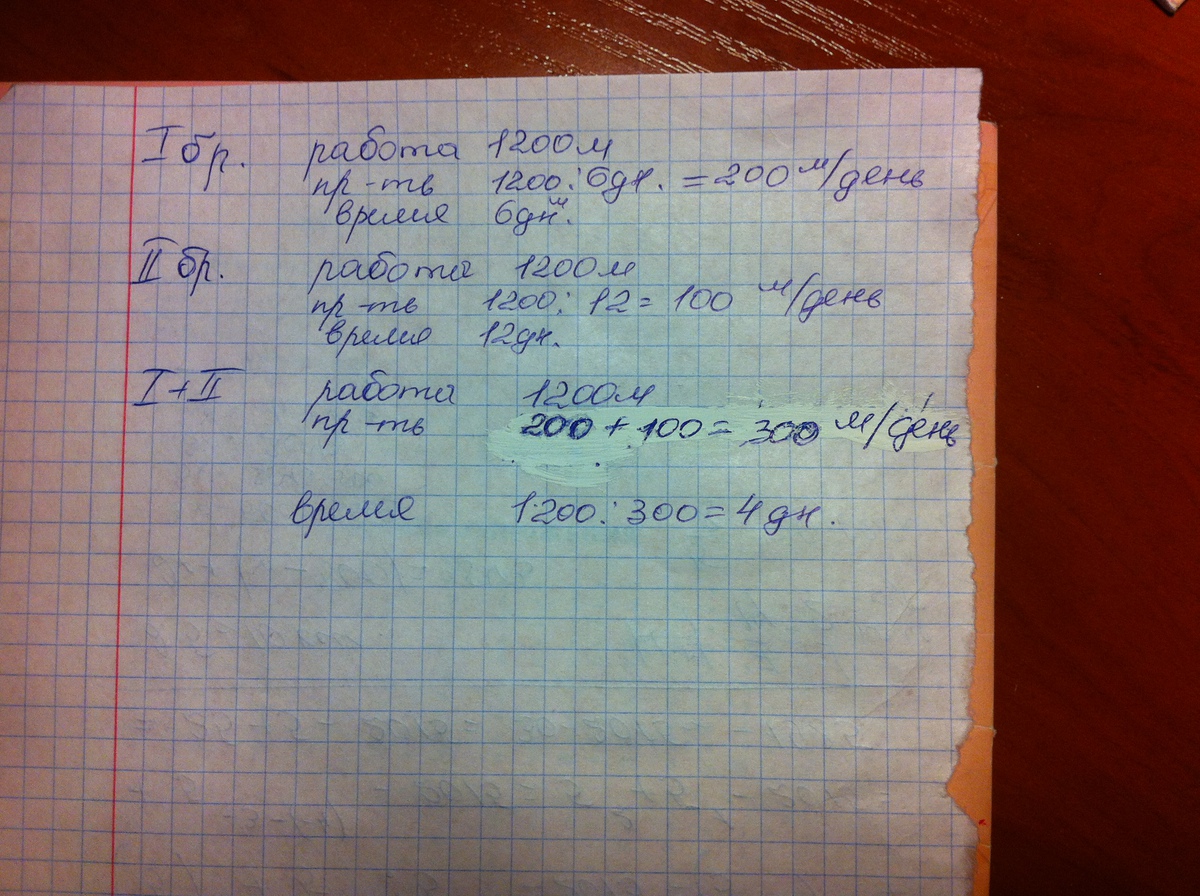 I бр. работа 1200м
пр-тв 1200:6дн. = 200 м/день
время 6дн.
II бр. работа 1200м
пр-тв 1200:12=100 м/день
время 12дн.
I+II работа 1200м
пр-тв 200+100=300 м/день
время 1200:300=4дн.